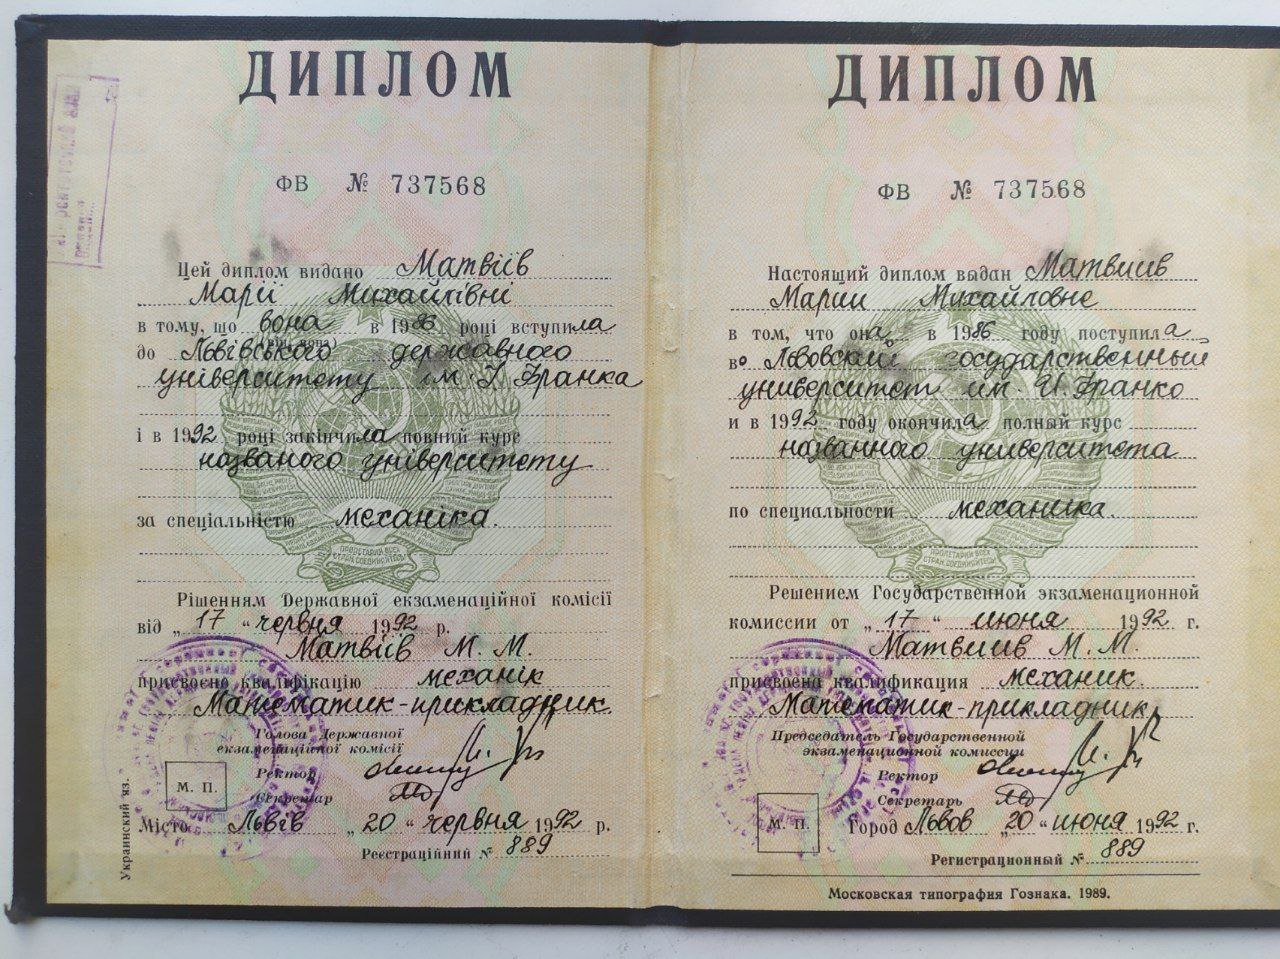 ДИПЛОМ
ФВ № 737568
Цей диплом видано Матвіїв
Марії Михайлівні
в тому, що вона в 1986 році вступила
до Львівського державного
університету ім І. Франка
і в 1992 році закінчила повний курс
названого університету
за спеціальністю механіка.
Рішенням Державної екзаменаційної комісії
від „17“ червня 1992 р.
Матвіїв М. М.
присвоєно кваліфікацію механік
Математик-прикладник.
Голова Державної
екзаменаційної комісії
Ректор
Секретар
М. П.
Місто Львів „20“ червня 1992 р.
Реєстраційний № 889
Украинский яз.
ДИПЛОМ
ФВ № 737568
Настоящий диплом выдан Матвиив
Марии Михайловне
в том, что она в 1986 году поступила
во Львовский государственный
университет им. И. Франко
и в 1992 году окончила полный курс
названного университета
по специальности механика.
Решением Государственной экзаменационной
комиссии от „17“ июня 1992 г.
Матвиив М. М.
присвоена квалификация механик.
Математик-прикладник
Председатель Государственной
экзаменационной комиссии
Ректор
Секретарь
М. П.
Город Львов „20“ июня 1992 г.
Регистрационный № 889
Московская типография Гознака. 1989.